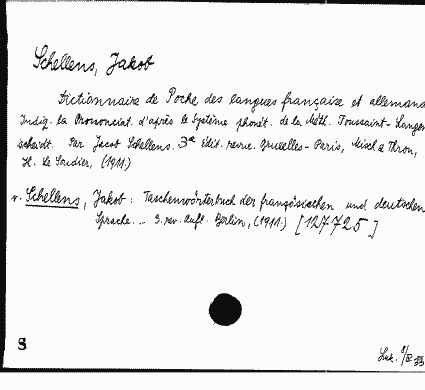 Schellens, Jakob
Dictionnaire de Poche des langues française et allemand
Indiq. la Prononciat. d'après le Système phonét. de la Méth. Toussaint-Langen
scheidt. Par Jacob Schellens. 3e édit. revue. Bruxelles-Paris, Kiesl & Thron,
H. Le Soudier, (1911)
v. Schellens, Jakob: Taschenwörterbuch der französischen und deutschen
Sprache. - 3. rev. Aufl. Berlin, (1911.) [127725]
S